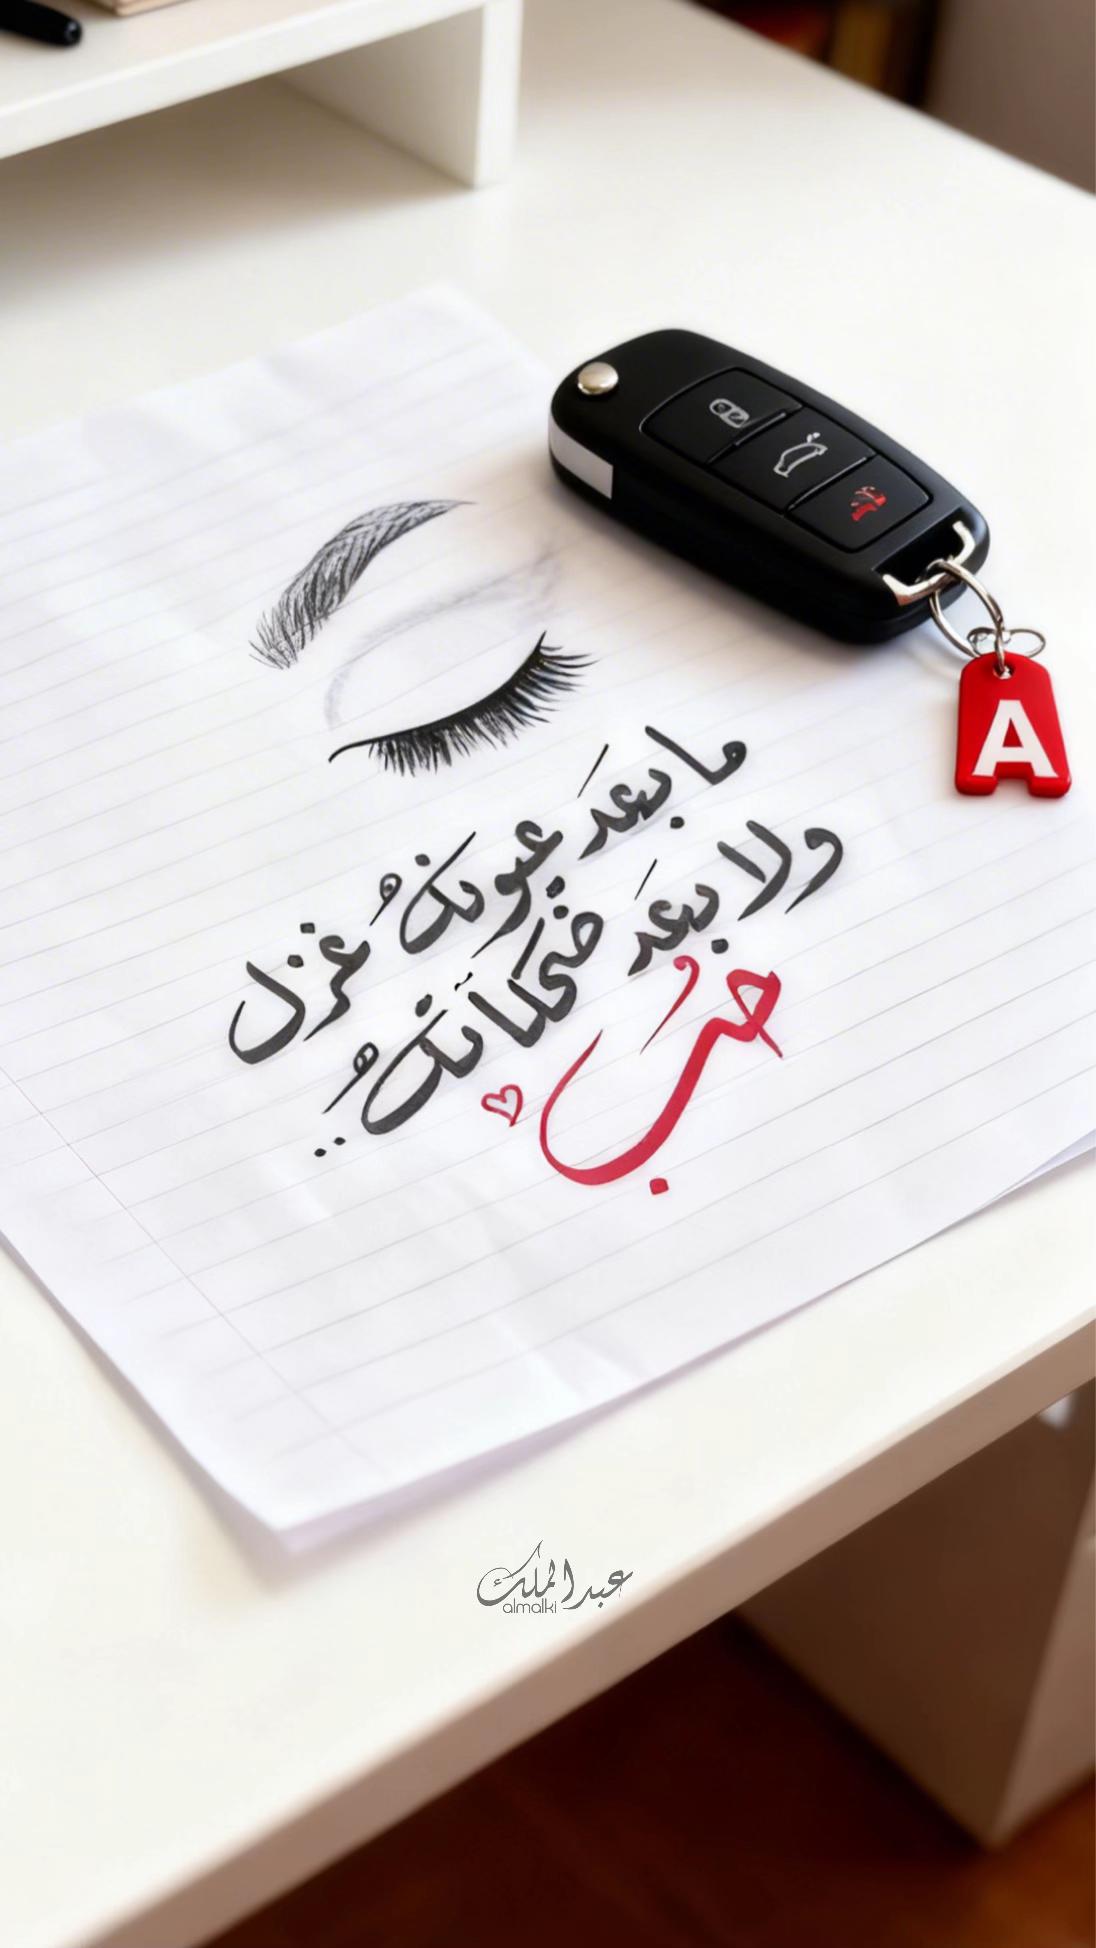 ما بعد عيونك غزل
ولا بعد ضحكاتك ..
حب
A
عبدالملك
almalki